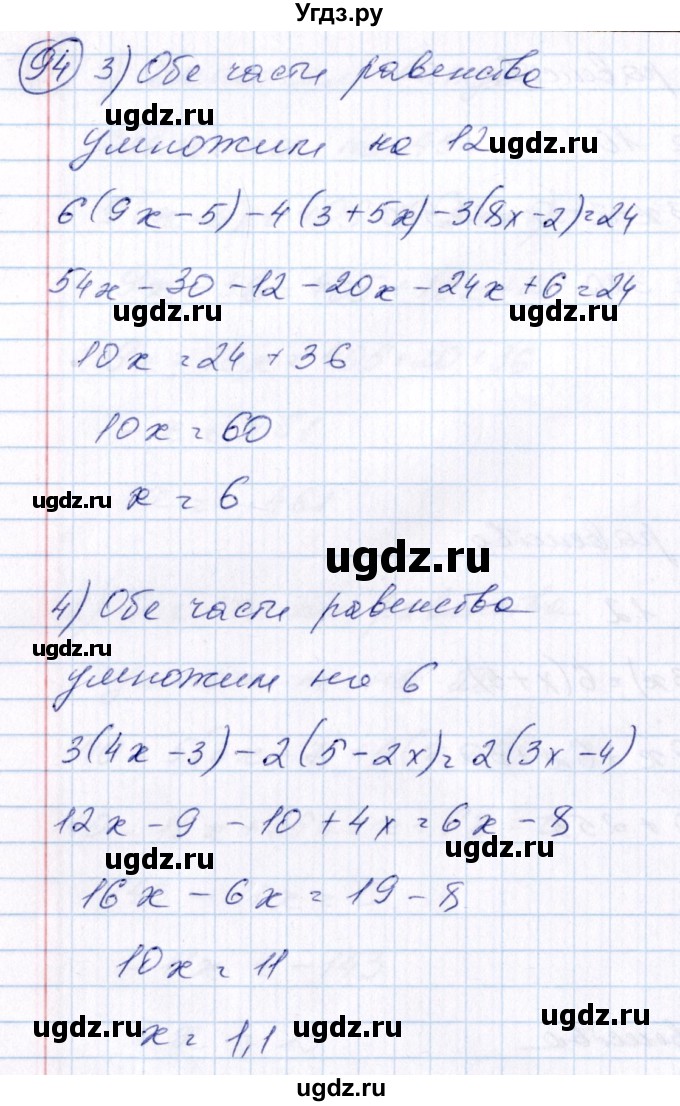 Угдз.ру
94 3) Обе части равенства
ugdz.ru
умножим на 12 ugdz.ru
6(9x - 5) - 4(3 + 5x) - 3(8x - 2) = 24
54x - 30 - 12 - 20x - 24x + 6 = 24
ugdz.ru ugdz.ru
10x = 24 + 36
10x = 60
ugdz.ru x = 6
ugdz.ru
4) Обе части равенства
ugdz.ru
умножим на 6
3(4x - 3) - 2(5 - 2x) = 2(3x - 4)
12x - 9 - 10 + 4x = 6x - 8
ugdz.ru ugdz.ru
16x - 6x = 19 - 8
10x = 11
ugdz.ru x = 1,1 ugdz.ru ugdz.ru
ugdz.ru